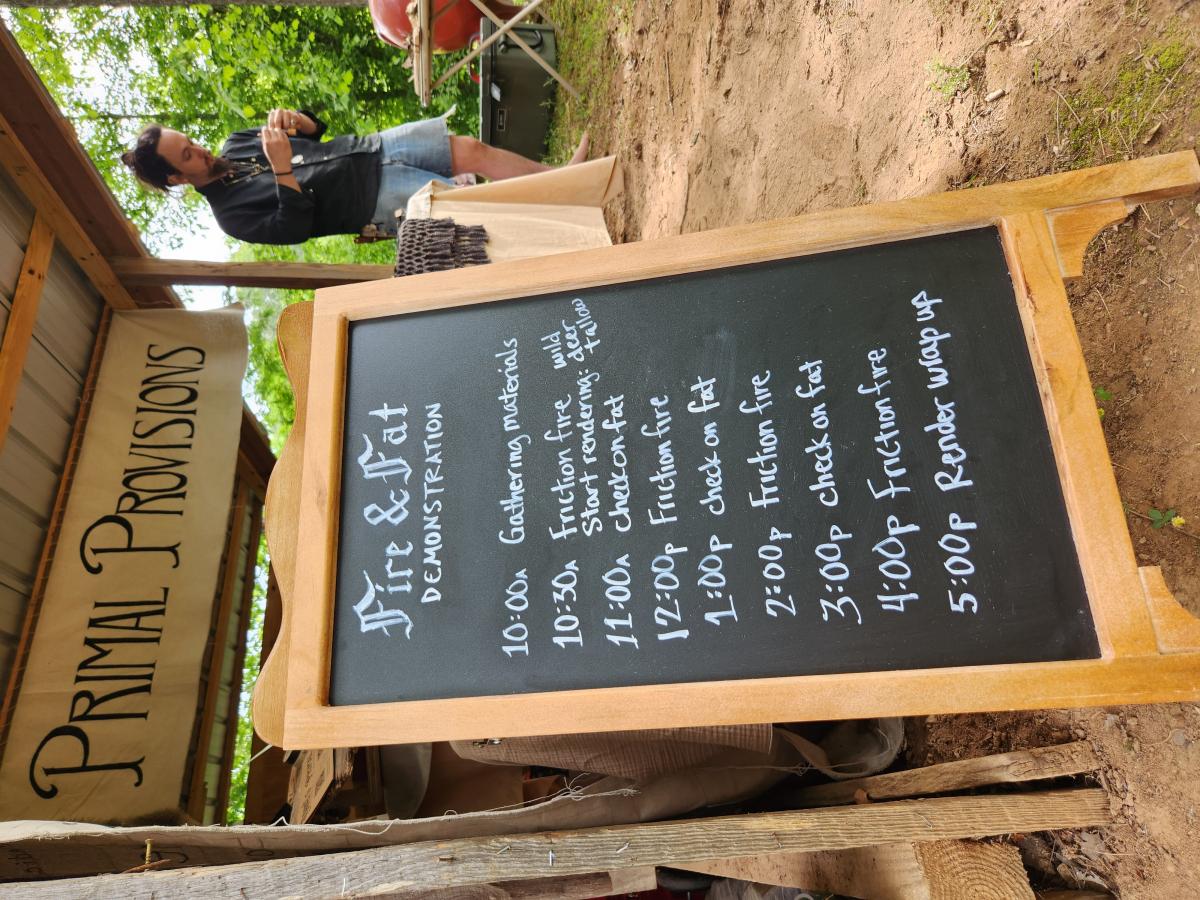 PRIMAL PROVISIONS
Fire & Fat
DEMONSTRATION
10:00A Gathering materials
10:30A Friction fire
Start rendering: wild deer tallow
11:00A check on fat
12:00p Friction fire
1:00p check on fat
2:00p Friction fire
3:00p check on fat
4:00p Friction fire
5:00p Render wrap up